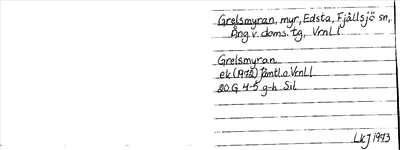 Grelsmyran, myr, Edsta, Fjällsjö sn,
Ång v. doms. tg, Vrnl l
Grelsmyran
ek (1972) Jämtl o. Vrnl l
20 G 4-5 g-h Sil
LKJ 1973